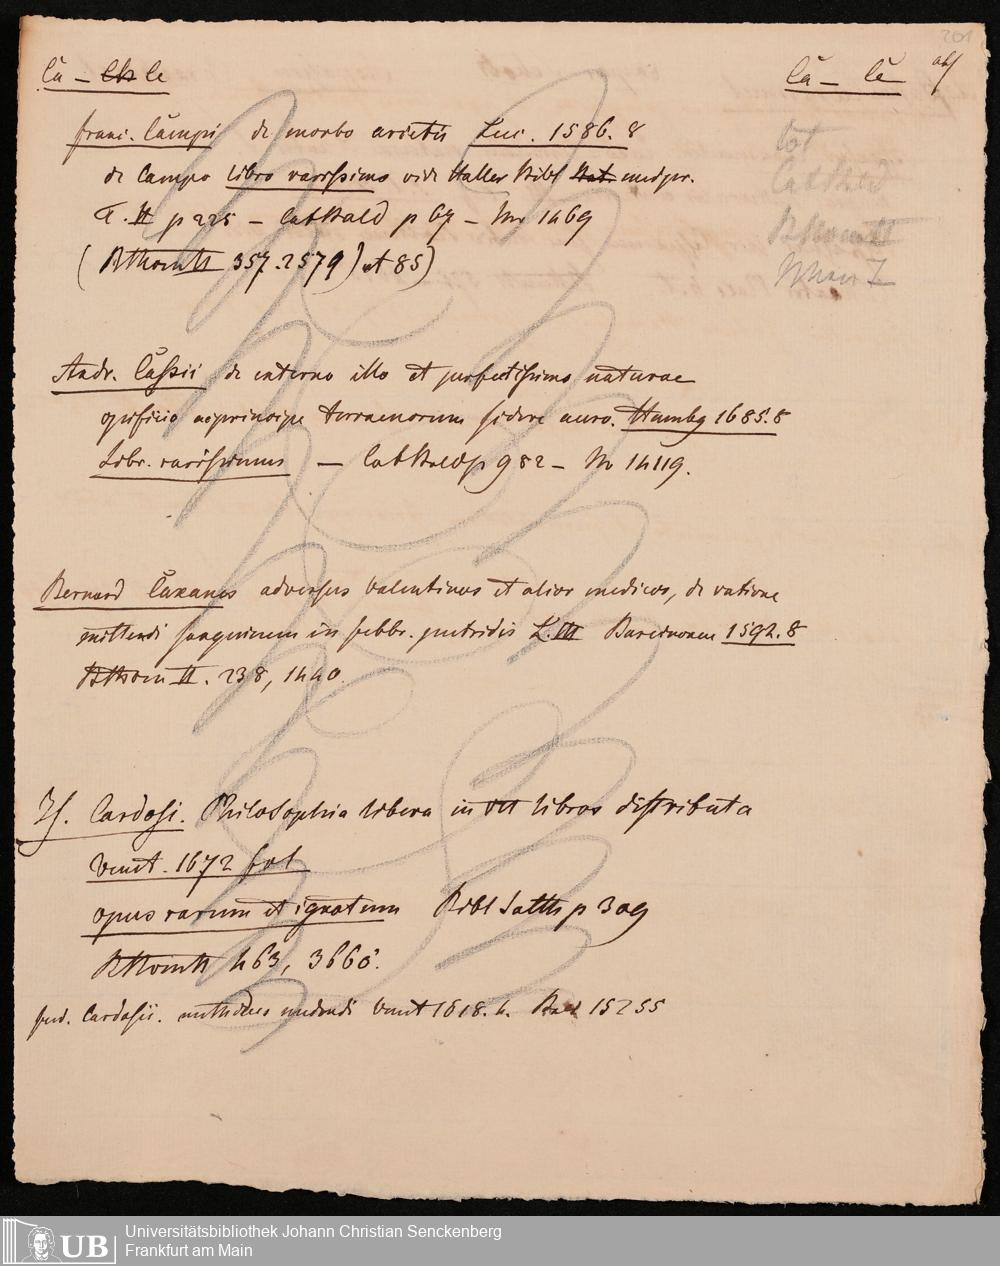 201
Că – Ce
Că – Cĕ abs
franc. Cămpi de morbo arietis Luc. 1586. 8
tot
de Campo Libro rarissimo vide Haller Bibl medpr.
Cat Bald
T. II p 225 – Cat Bald p 67 – No 1469
BThom II
(BThom II 357. 2579) et 85)
Andr. Căssii de interno illo et perfectissimo naturae
opificio ac principe terraenorum sidere auro. Hambg 1685. 8
Libr. rarissimus – Cat Bald p 982 – No 14119.
Bernard Căxanes adversus Valentinos et alios medicos, de ratione
mittendi sanguinem in febbr. putridis L. III Barcinonae 1592. 8
BThom II. 238, 1440.
Is. Cardosi. Philosophia libera in VII libros distributa
Venet. 1672 fol
opus rarum et ignotum Bibl Salth p 309
BThom II 463, 3660.
Cardosii. methodus medendi Venet 1618. 4. Bald 15255
Universitätsbibliothek Johann Christian Senckenberg
Frankfurt am Main
UB